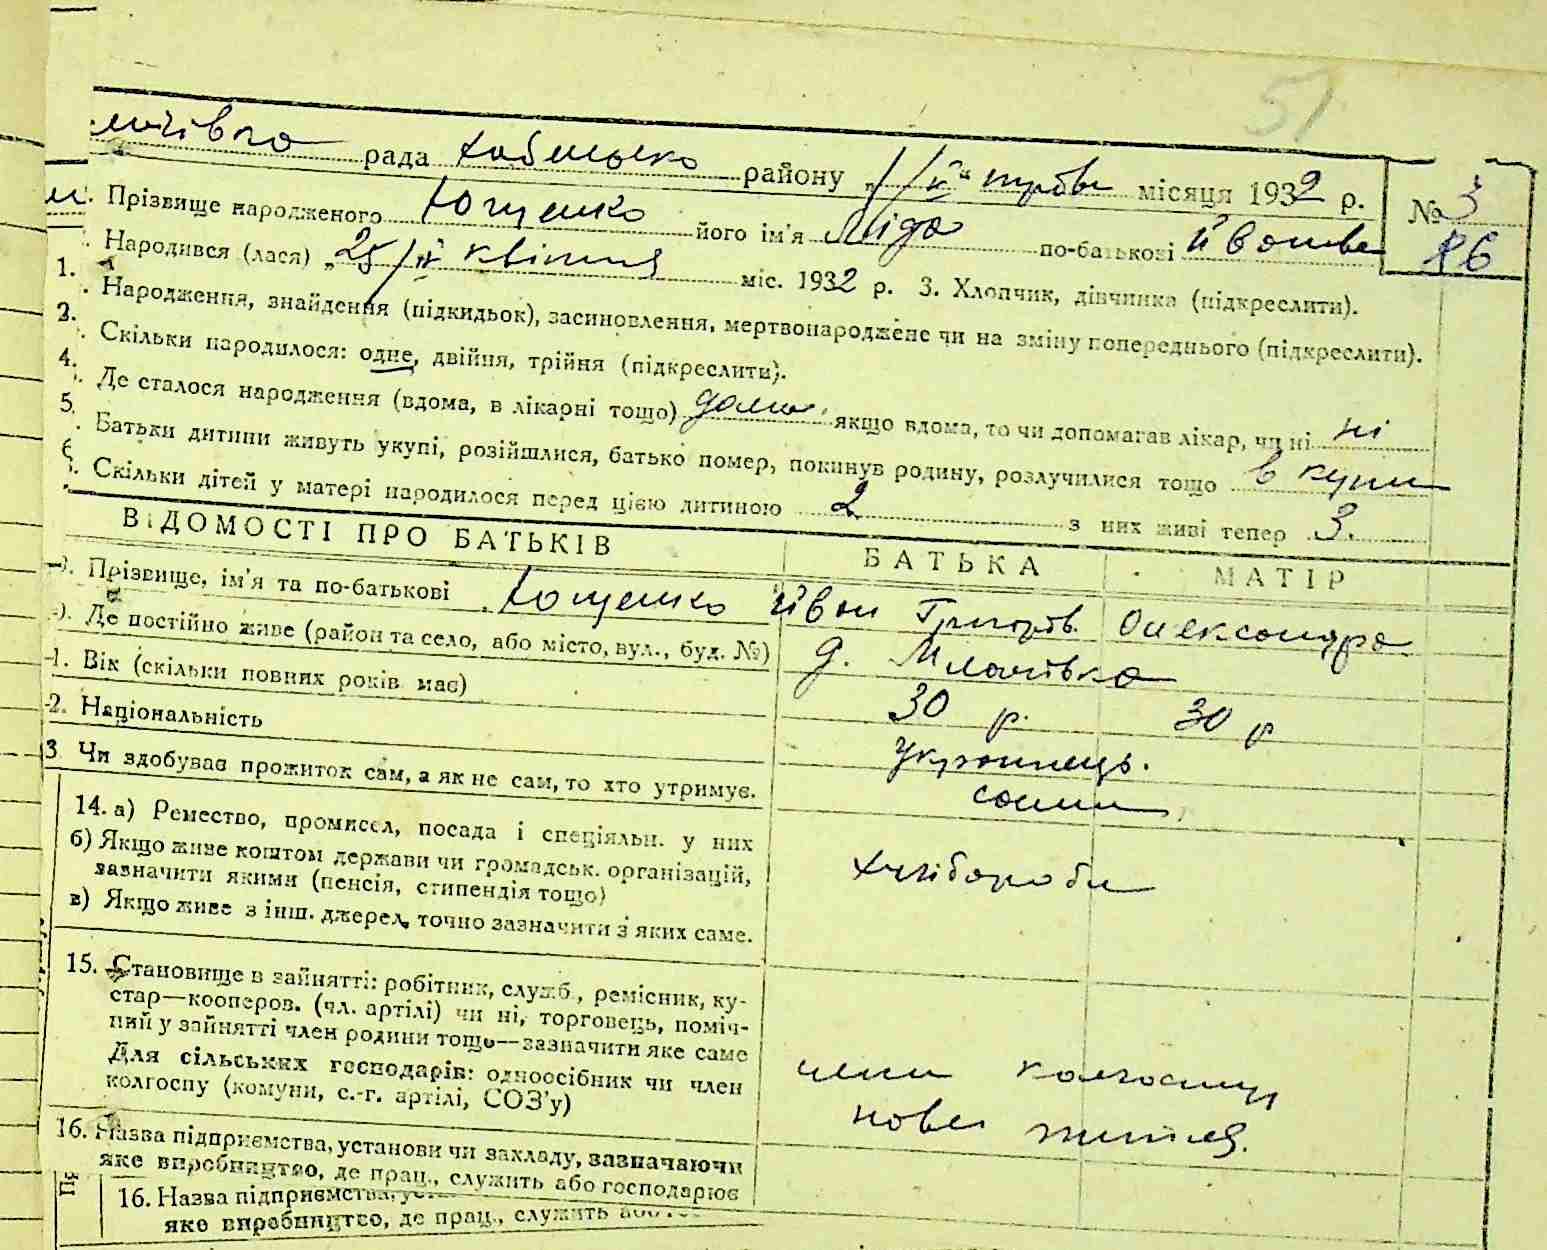 51
рада Кобеляцько району „1/V“ травня місяця 1932 р. № 3
Прізвище народженого Ющенко його ім'я Ліда по-батькові Йванов 86
1. Народився (лася) „25/IV квітня міс. 1932 р. 3. Хлопчик, дівчинка (підкреслити).
2. Народження, знайдення (підкидьок), засиновлення, мертвонароджене чи на зміну попереднього (підкреслити).
4. Скільки народилося: одне, двійня, трійня (підкреслити).
5. Де сталося народження (вдома, в лікарні тощо) дома якщо вдома, то чи допомагав лікар, чи ні ні
6. Батьки дитини живуть укупі, розійшлися, батько помер, покинув родину, розлучилися тощо в купи
Скільки дітей у матері народилося перед цією дитиною 2 з них живі тепер 3.
ВІДОМОСТІ ПРО БАТЬКІВ БАТЬКА МАТІР
Прізвище, ім'я та по-батькові Ющенко Йван Григоров. Олександра
Де постійно живе (район та село, або місто, вул., буд. №) д.
1. Вік (скільки повних років має) 30 р. 30 р
2. Національність Українець.
3 Чи здобуває прожиток сам, а як не сам, то хто утримує. сами
14. а) Ремество, промисел, посада і спеціяльн. у них
б) Якщо живе коштом держави чи громадськ. організацій, хлібороби
зазначити якими (пенсія, стипендія тощо)
в) Якщо живе з інш. джерел, точно зазначити з яких саме.
15. Становище в зайнятті: робітник, служб., ремісник, ку-
стар—кооперов. (чл. артілі) чи ні, торговець, поміч-
ний у зайнятті член родини тощо—зазначити яке саме
Для сільських господарів: одноосібник чи член члени колгоспу
колгоспу (комуни, с.-г. артілі, СОЗ'у) нове життя.
16. Назва підприємства, установи чи закладу, зазначаючи
яке виробництво, де прац., служить або господарює
16. Назва підприємства,
яке виробництво, де прац., служить або